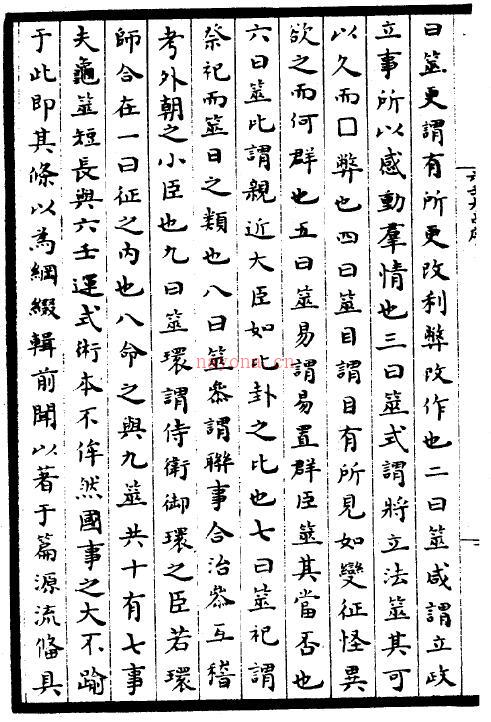 曰筮更謂有所更改利弊改作也二曰筮咸謂立政
立事所以感動羣情也三曰筮式謂將立法筮其可
以久而囗弊也四曰筮目謂目有所見如變征怪異
欲之而何群也五曰筮易謂易置群臣筮其當否也
六曰筮比謂親近大臣如比卦之比也七曰筮祀謂
祭祀而筮日之類也八曰筮叅謂聯事合治叅互稽
考外朝之小臣也九曰筮環謂侍衛御環之臣若環
師合在一曰征之內也八命之與九筮共十有七事
夫龜筮短長與六壬運式術本不侔然國事之大不踰
于此即其條以為綱綴輯前聞以著于篇源流俻具
nayona.cn